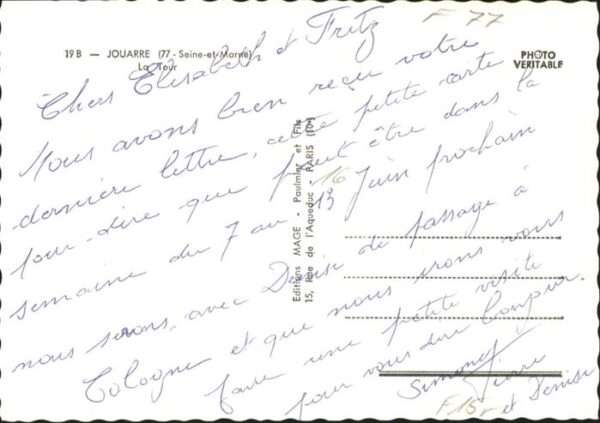 F 77
19 B — JOUARRE (77 - Seine-et-Marne)
La Tour
PHOTO
VERITABLE
Chers Elisabeth et Fritz
Nous avons bien reçu votre
dernière lettre, cette petite carte
pour dire que peut être dans la
semaine du 7 au 13 Juin prochain
16
nous serons avec Denise de passage à
Cologne et que nous irons vous
faire une petite visite
pour vous dire bonjour.
Simone
Pierre
et Denise
Editions MAGE - Paulmier et Fils
15, Rue de l'Aqueduc - PARIS (10e)
F 15